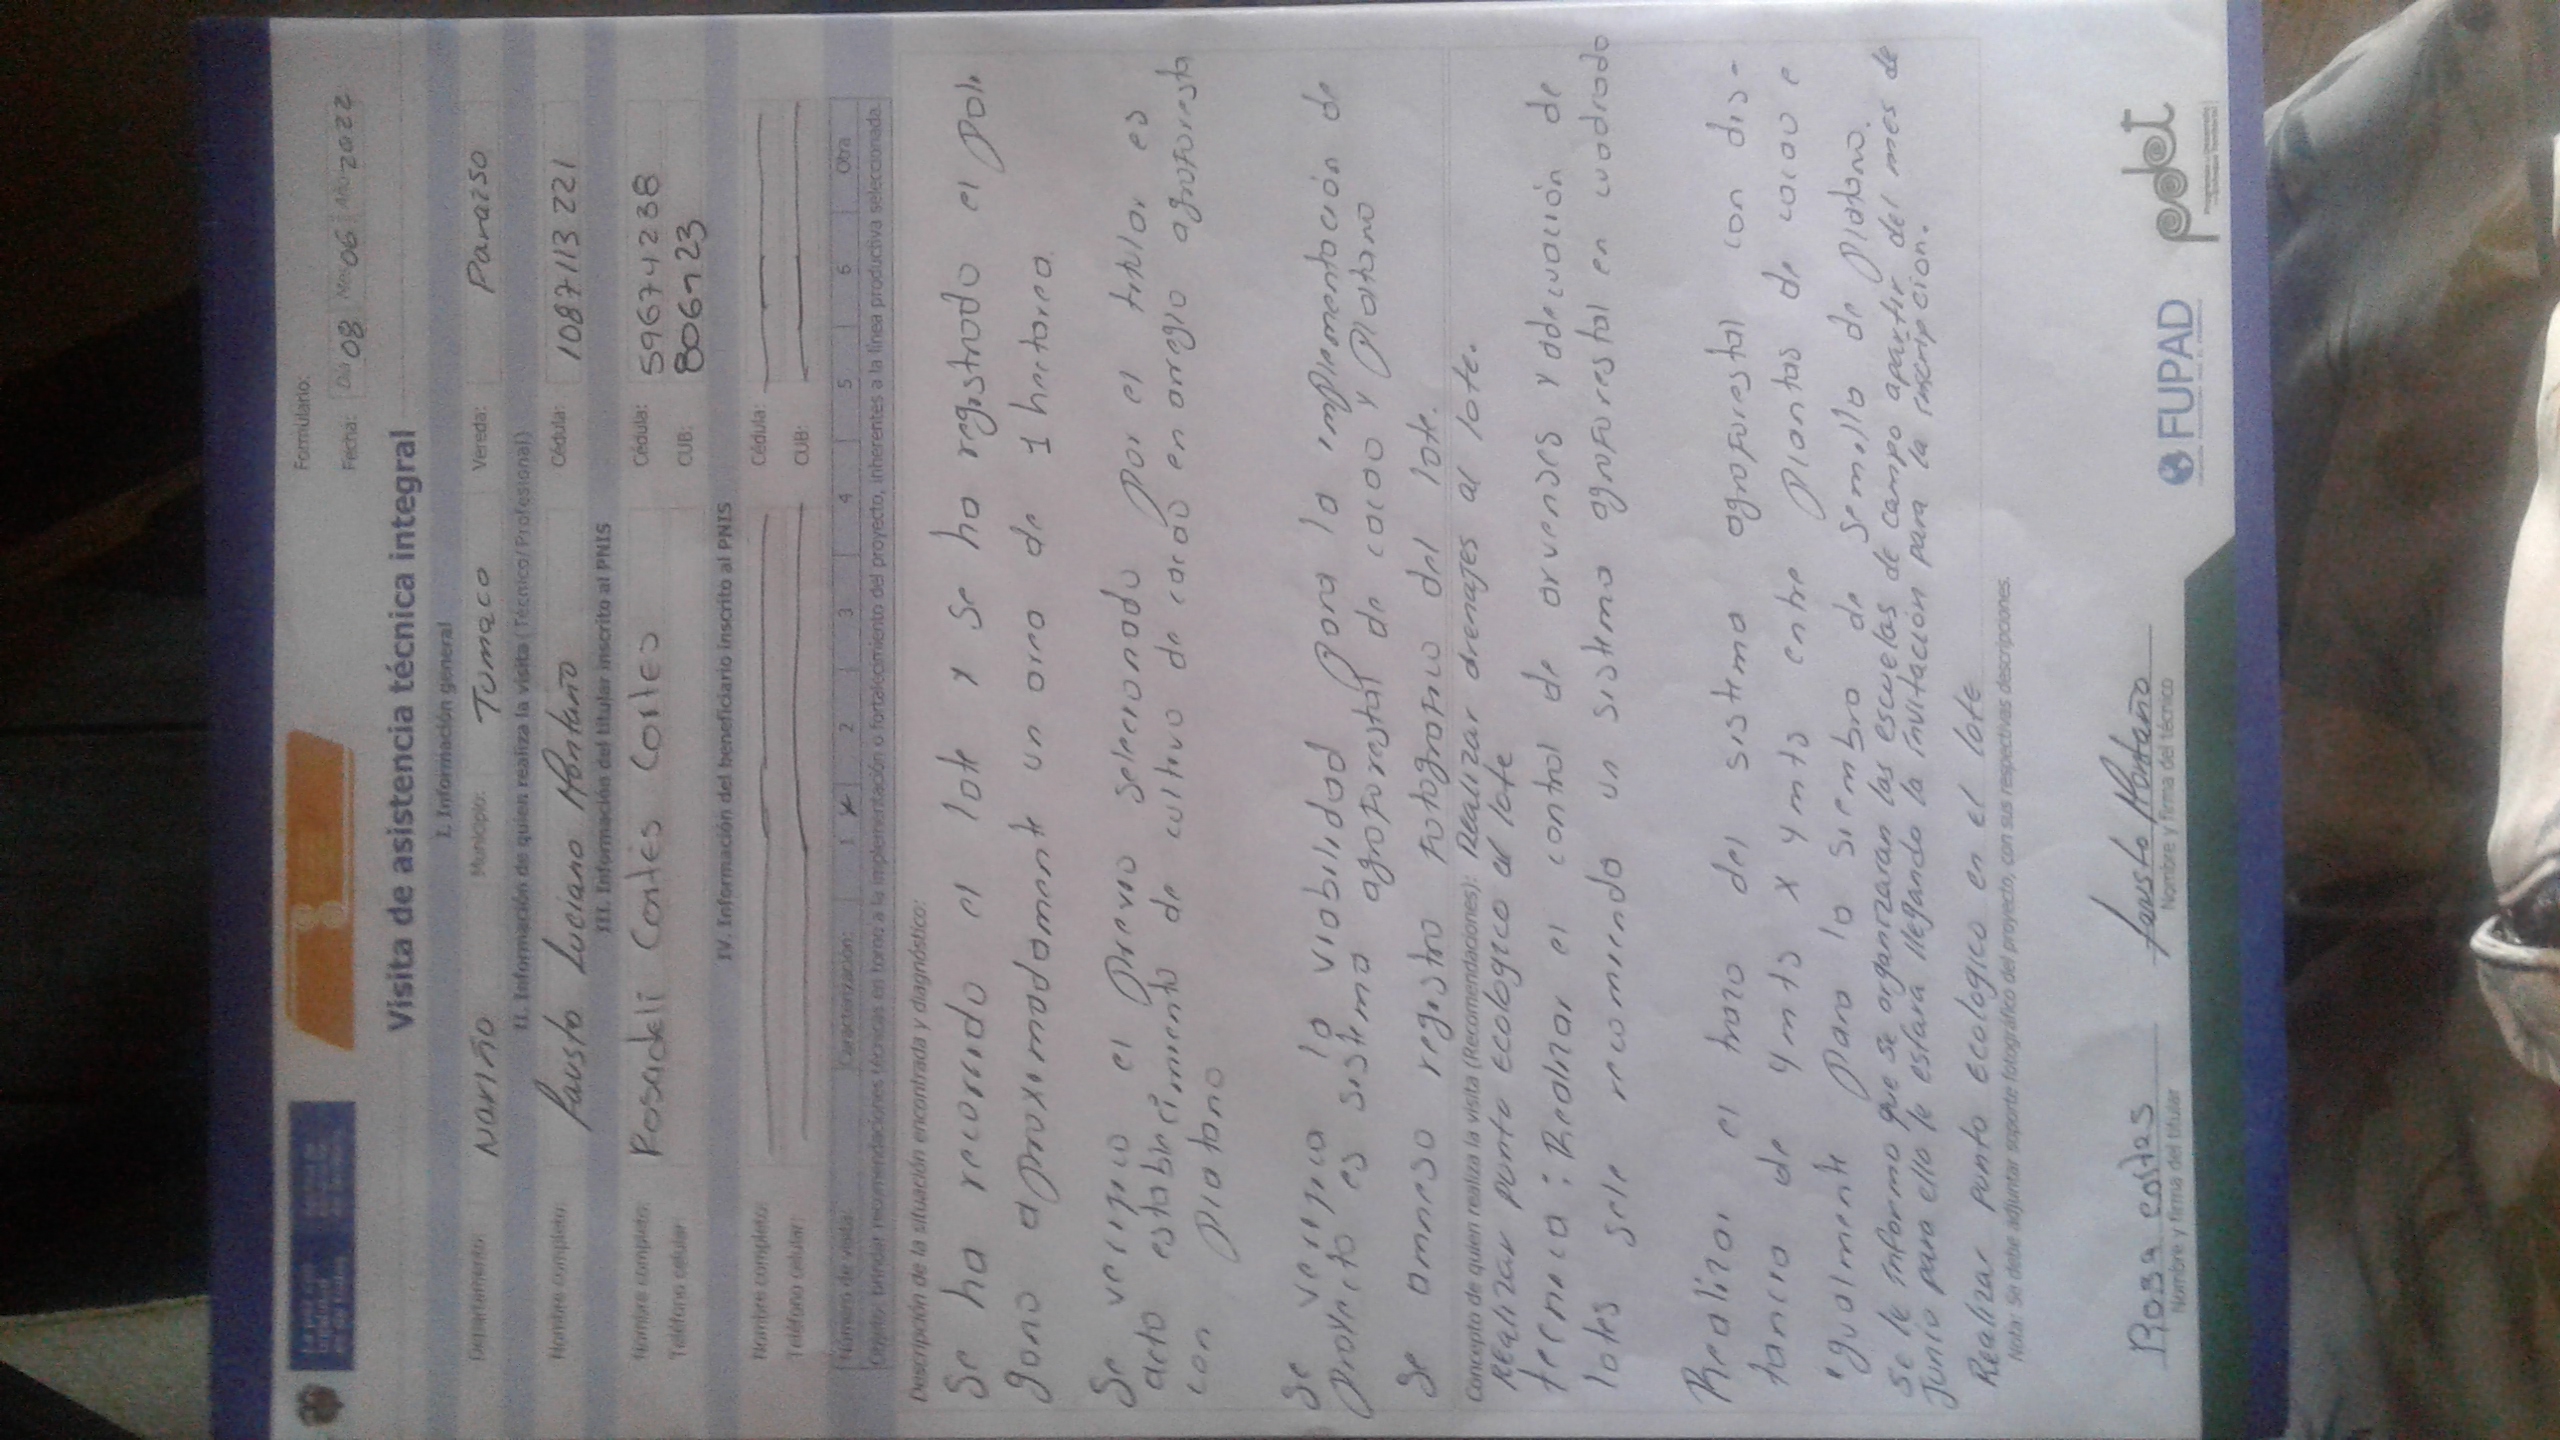 Formulario:
Fecha: Día 08 Mes 06 Año 2022
Visita de asistencia técnica integral
I. Información general
Departamento: Nariño Municipio: Tumaco Vereda: Paraiso
II. Información de quien realiza la visita (Técnico/Profesional)
Nombre completo: Fausto Luciano Montaño Cédula: 1087113221
III. Información del titular inscrito al PNIS
Nombre completo: Rosadeli Cortés Cortes Cédula: 59674238
Teléfono celular: CUB:
IV. Información del beneficiario inscrito al PNIS
Nombre completo: Cédula:
Teléfono celular: CUB:
Número de visita: Caracterización: 1 x 2 3 4 5 6 Otra
Objeto: brindar recomendaciones técnicas en torno a la implementación o fortalecimiento del proyecto, inherentes a la línea productiva seleccionada.
Descripción de la situación encontrada y diagnóstico:
Se ha recorrido el lote y se ha registrado el poli
gono aproximadamente un area de 1 hectarea.
Se verifico el previo seleccionado por el titular es
acto establecimiento de cultivo de cacao en arreglo agroforesta
con platano
Se verifica la viabilidad para la implementación de
proyecto es sistema agroforestal de cacao y platano
Se anexo registro fotografico del lote.
Concepto de quien realiza la visita (Recomendaciones): Realizar drenajes al lote.
Realizar punto ecologico al lote
tecnica: Realizar el control de arvenses y adecuación de
lotes sele recomienda un sistema agroforestal en cuadrado
Realizar el trazo del sistema agroforestal con dis-
tancia de 4 mts x 4 mts entre plantas de cacao e
igualmente para la siembra de semilla de platano.
Se le informo que se organizaran las escuelas de campo apartir del mes de
Junio para ello le estara llegando la invitación para la inscripcion.
Realizar punto ecologico en el lote
Nota: Se debe adjuntar soporte fotográfico del proyecto, con sus respectivas descripciones.
Rosa cortes
Nombre y firma del titular
Fausto Montaño
Nombre y firma del técnico
FUPAD
pdet